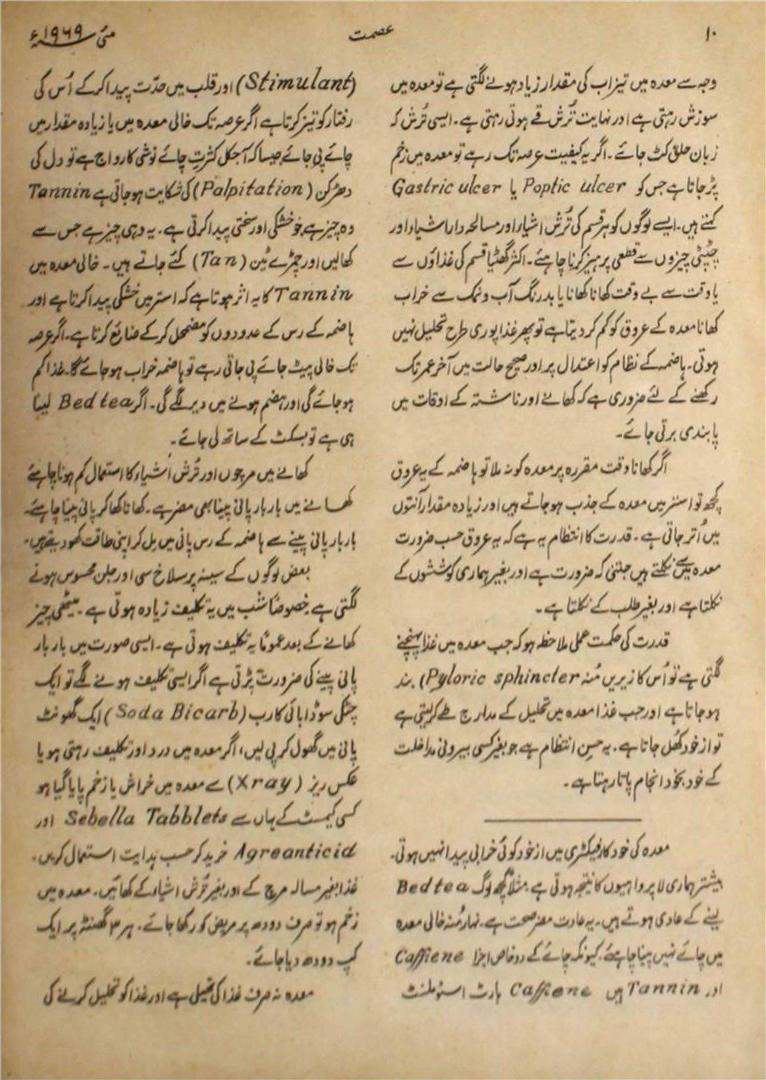 ۱۰
عصمت
مئی ۱۹۶۹ء
وجہ سے معدہ میں تیزاب کی مقدار زیادہ ہونے لگتی ہے تو معدہ میں
سوزش رہتی ہے اور نہایت تُرش قے ہوتی رہتی ہے۔ ایسی تُرش کہ
زبان حلق کٹ جائے۔ اگر یہ کیفیت عرصہ تک رہے تو معدہ میں زخم
پڑ جاتا ہے جس کو Poptic ulcer یا Gastric ulcer
کہتے ہیں۔ ایسے لوگوں کو ہر قسم کی تُرش اشیار اور مسالحہ دار اشیاد اور
چٹپٹی چیزوں سے قطعی پرہیز کرنا چاہیئے۔ اکثر گھٹیا قسم کی غذاؤں سے
یا وقت سے بے وقت کھانا کھانا یا بدرنگ آب و نمک سے خراب
کھانا معدہ کے عروق کو کم کر دیتا ہے تو پھر غذا پوری طرح تحلیل نہیں
ہوتی۔ ہاضمہ کے نظام کو اعتدال پر اور صحیح حالت میں آخر عمر تک
رکھنے کے لئے ضروری ہے کہ کھانے اور ناشتہ کے اوقات میں
پابندی برتی جائے۔
اگر کھانا وقت مقررہ پر معدہ کو نہ ملا تو ہاضمہ کے یہ عروق
کچھ تو استر میں معدہ کے جذب ہو جاتے ہیں اور زیادہ مقدار آنتوں
میں اُتر جاتی ہے۔ قدرت کا انتظام یہ ہے کہ یہ عروق حسب ضرورت
معدہ میں نکلتے ہیں جتنی کہ ضرورت ہے اور بغیر ہماری کوششوں کے
نکلتا ہے اور بغیر طلب کے نکلتا ہے۔
قدرت کی حکمت عملی ملاحظہ ہو کہ جب معدہ میں غذا پہنچنے
لگتی ہے تو اُس کا زیریں مُنہ Pyloric sphincter) بند
ہو جاتا ہے اور جب غذا معدہ میں تحلیل کے مدارج طے کر لیتی ہے
تو از خود کھل جاتا ہے۔ یہ حسن انتظام ہے جو بغیر کسی بیرونی مداخلت
کے خود بخود انجام پاتا رہتا ہے۔
معدہ کی خود کار فیکٹری میں از خود کوئی خرابی پیدا نہیں ہوتی۔
بیشتر ہماری لاپرواہیوں کا نتیجہ ہوتی ہے مثلاً کچھ لوگ Bed tea
پینے کے عادی ہوتے ہیں۔ یہ عادت مضر صحت ہے۔ نہار مُنہ خالی معدہ
میں چائے نہیں پینا چاہیئے۔ کیونکہ چائے کے دو خاص اجزا Caffiene
اور Tannin ہیں Caffiene ہارٹ اسٹومُلنٹ
(Stimulant) اور قلب میں حدّت پیدا کر کے اُس کی
رفتار کو تیز کرتا ہے اگر عرصہ تک خالی معدہ میں یا زیادہ مقدار میں
چائے پی جائے جیسا کہ آجکل کثرتِ چائے نوشی کا رواج ہے تو دل کی
دھڑکن (Palpitation) کی شکایت ہو جاتی ہے Tannin
وہ چیز ہے جو خشکی اور سختی پیدا کرتی ہے۔ یہ وہی چیز ہے جس سے
کھالیں اور چمڑے ٹین (Tan) کئے جاتے ہیں۔ خالی معدہ میں
Tannin کا یہ اثر ہوتا ہے کہ استر میں خشکی پیدا کرتا ہے اور
ہاضمہ کے رس کے غدودوں کو مضمحل کر کے ضائع کرتا ہے۔ اگر عرصہ
تک خالی پیٹ چائے پی جاتی رہے تو ہاضمہ خراب ہو جائے گا۔ غذا کم
ہو جائے گی اور ہضم ہونے میں دیر لگے گی۔ اگر Bed tea لینا
ہی ہے تو بسکٹ کے ساتھ لی جائے۔
کھانے میں مرچوں اور تُرش اشیاء کا استعمال کم ہونا چاہیئے
کھانے میں بار بار پانی پینا بھی مضر ہے۔ کھانا کھا کر پانی پینا چاہیئے۔
بار بار پانی پینے سے ہاضمہ کے رس پانی میں مل کر اپنی طاقت کھو دیتے ہیں۔
بعض لوگوں کے سینہ پر سلاخ سی اور جلن محسوس ہونے
لگتی ہے خصوصاً شب میں یہ تکلیف زیادہ ہوتی ہے۔ میٹھی چیز
کھانے کے بعد عموماً یہ تکلیف ہوتی ہے۔ ایسی صورت میں بار بار
پانی پینے کی ضرورت پڑتی ہے اگر ایسی تکلیف ہونے لگے تو ایک
چٹکی سوڈا بائی کارب (Soda Bicarb) ایک گھونٹ
پانی میں گھول کر پی لیں، اگر معدہ میں درد اور تکلیف رہتی ہو یا
عکس ریز (Xray) سے معدہ میں خراش یا زخم پایا گیا ہو
کسی کیمسٹ کے یہاں سے Sebella Tabblets اور
Agreanticid خرید کر حسب ہدایت استعمال کریں۔
غذا بغیر مسالہ مرچ کے اور بغیر تُرش اشیاء کے کھائیں۔ معدہ میں
زخم ہو تو صرف دودھ پر مریض کو رکھا جائے۔ ہر ۳ گھنٹہ پر ایک
کپ دودھ دیا جائے۔
معدہ نہ صرف غذا کی تھیلی ہے اور غذا کو تحلیل کرنے کی